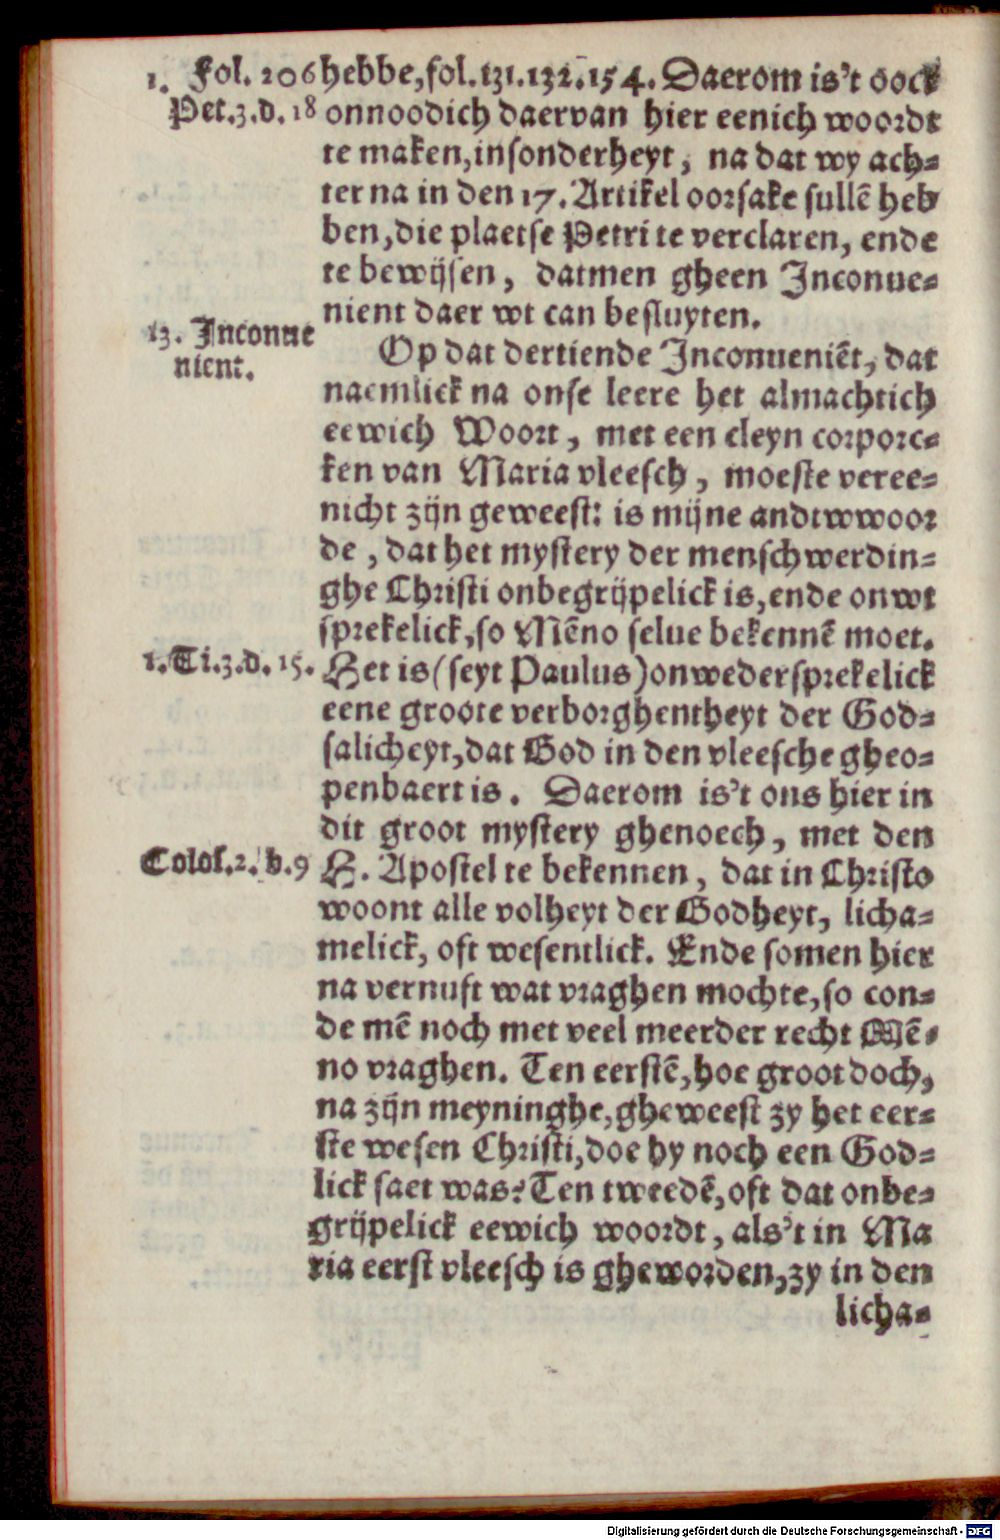 1. Fol. 206 hebbe, fol. 131. 132. 154. Daerom is't oock
Pet. 3. d. 18 onnoodich daervan hier eenich woordt
te maken, insonderheyt, na dat wy ach⸗
ter na in den 17. Artikel oorsake sullē heb
ben, die plaetse Petri te verclaren, ende
te bewijsen, datmen gheen Inconue⸗
nient daer wt can besluyten.
13. Inconue
nient.
Op dat dertiende Inconueniēt, dat
naemlick na onse leere het almachtich
eewich Woort, met een cleyn corpore⸗
ken van Maria vleesch, moeste veree⸗
nicht zijn geweest: is mijne andtwwoor
de, dat het mystery der menschwerdin⸗
ghe Christi onbegrijpelick is, ende onwt
sprekelick, so Mēno selue bekennē moet.
1. Ti. 3. d. 15. Het is (seyt Paulus) onwedersprekelick
eene groote verborghentheyt der God⸗
salicheyt, dat God in den vleesche gheo⸗
penbaert is. Daerom is't ons hier in
dit groot mystery ghenoech, met den
Colos. 2. b. 9 H. Apostel te bekennen, dat in Christo
woont alle volheyt der Godheyt, licha⸗
melick, oft wesentlick. Ende somen hier
na vernuft wat vraghen mochte, so con⸗
de mē noch met veel meerder recht Mē⸗
no vraghen. Ten eerstē, hoe groot doch,
na zijn meyninghe, gheweest zy het eer⸗
ste wesen Christi, doe hy noch een God⸗
lick saet was? Ten tweedē, oft dat onbe⸗
grijpelick eewich woordt, als't in Ma
ria eerst vleesch is gheworden, zy in den
licha⸗
Digitalisierung gefördert durch die Deutsche Forschungsgemeinschaft - DFG